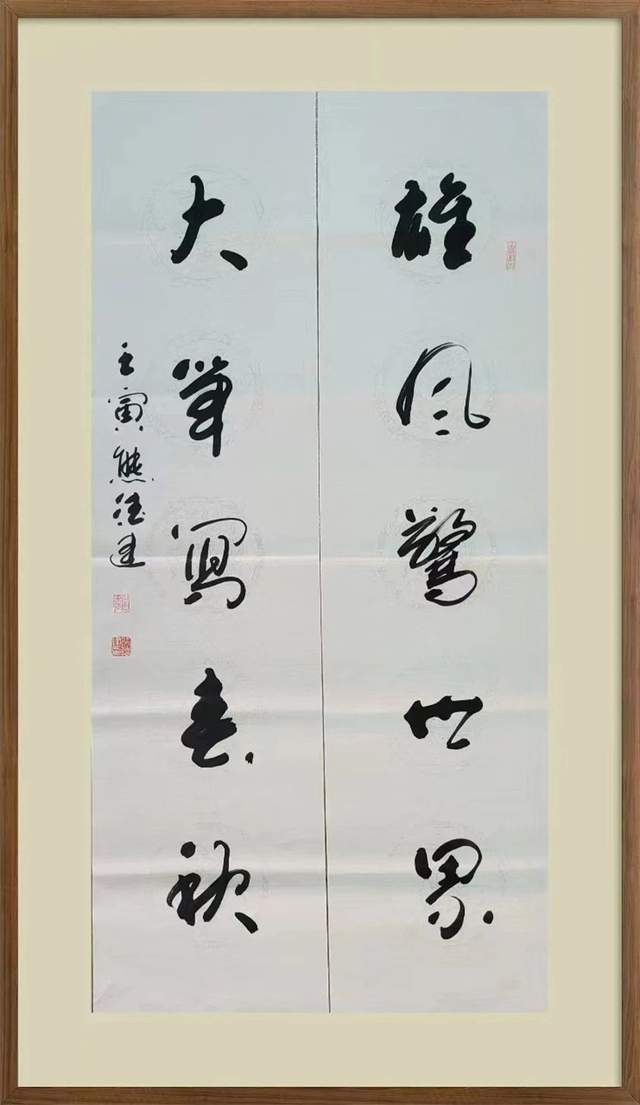 雄风驚世界
大筆寫春秋
壬寅熊德建